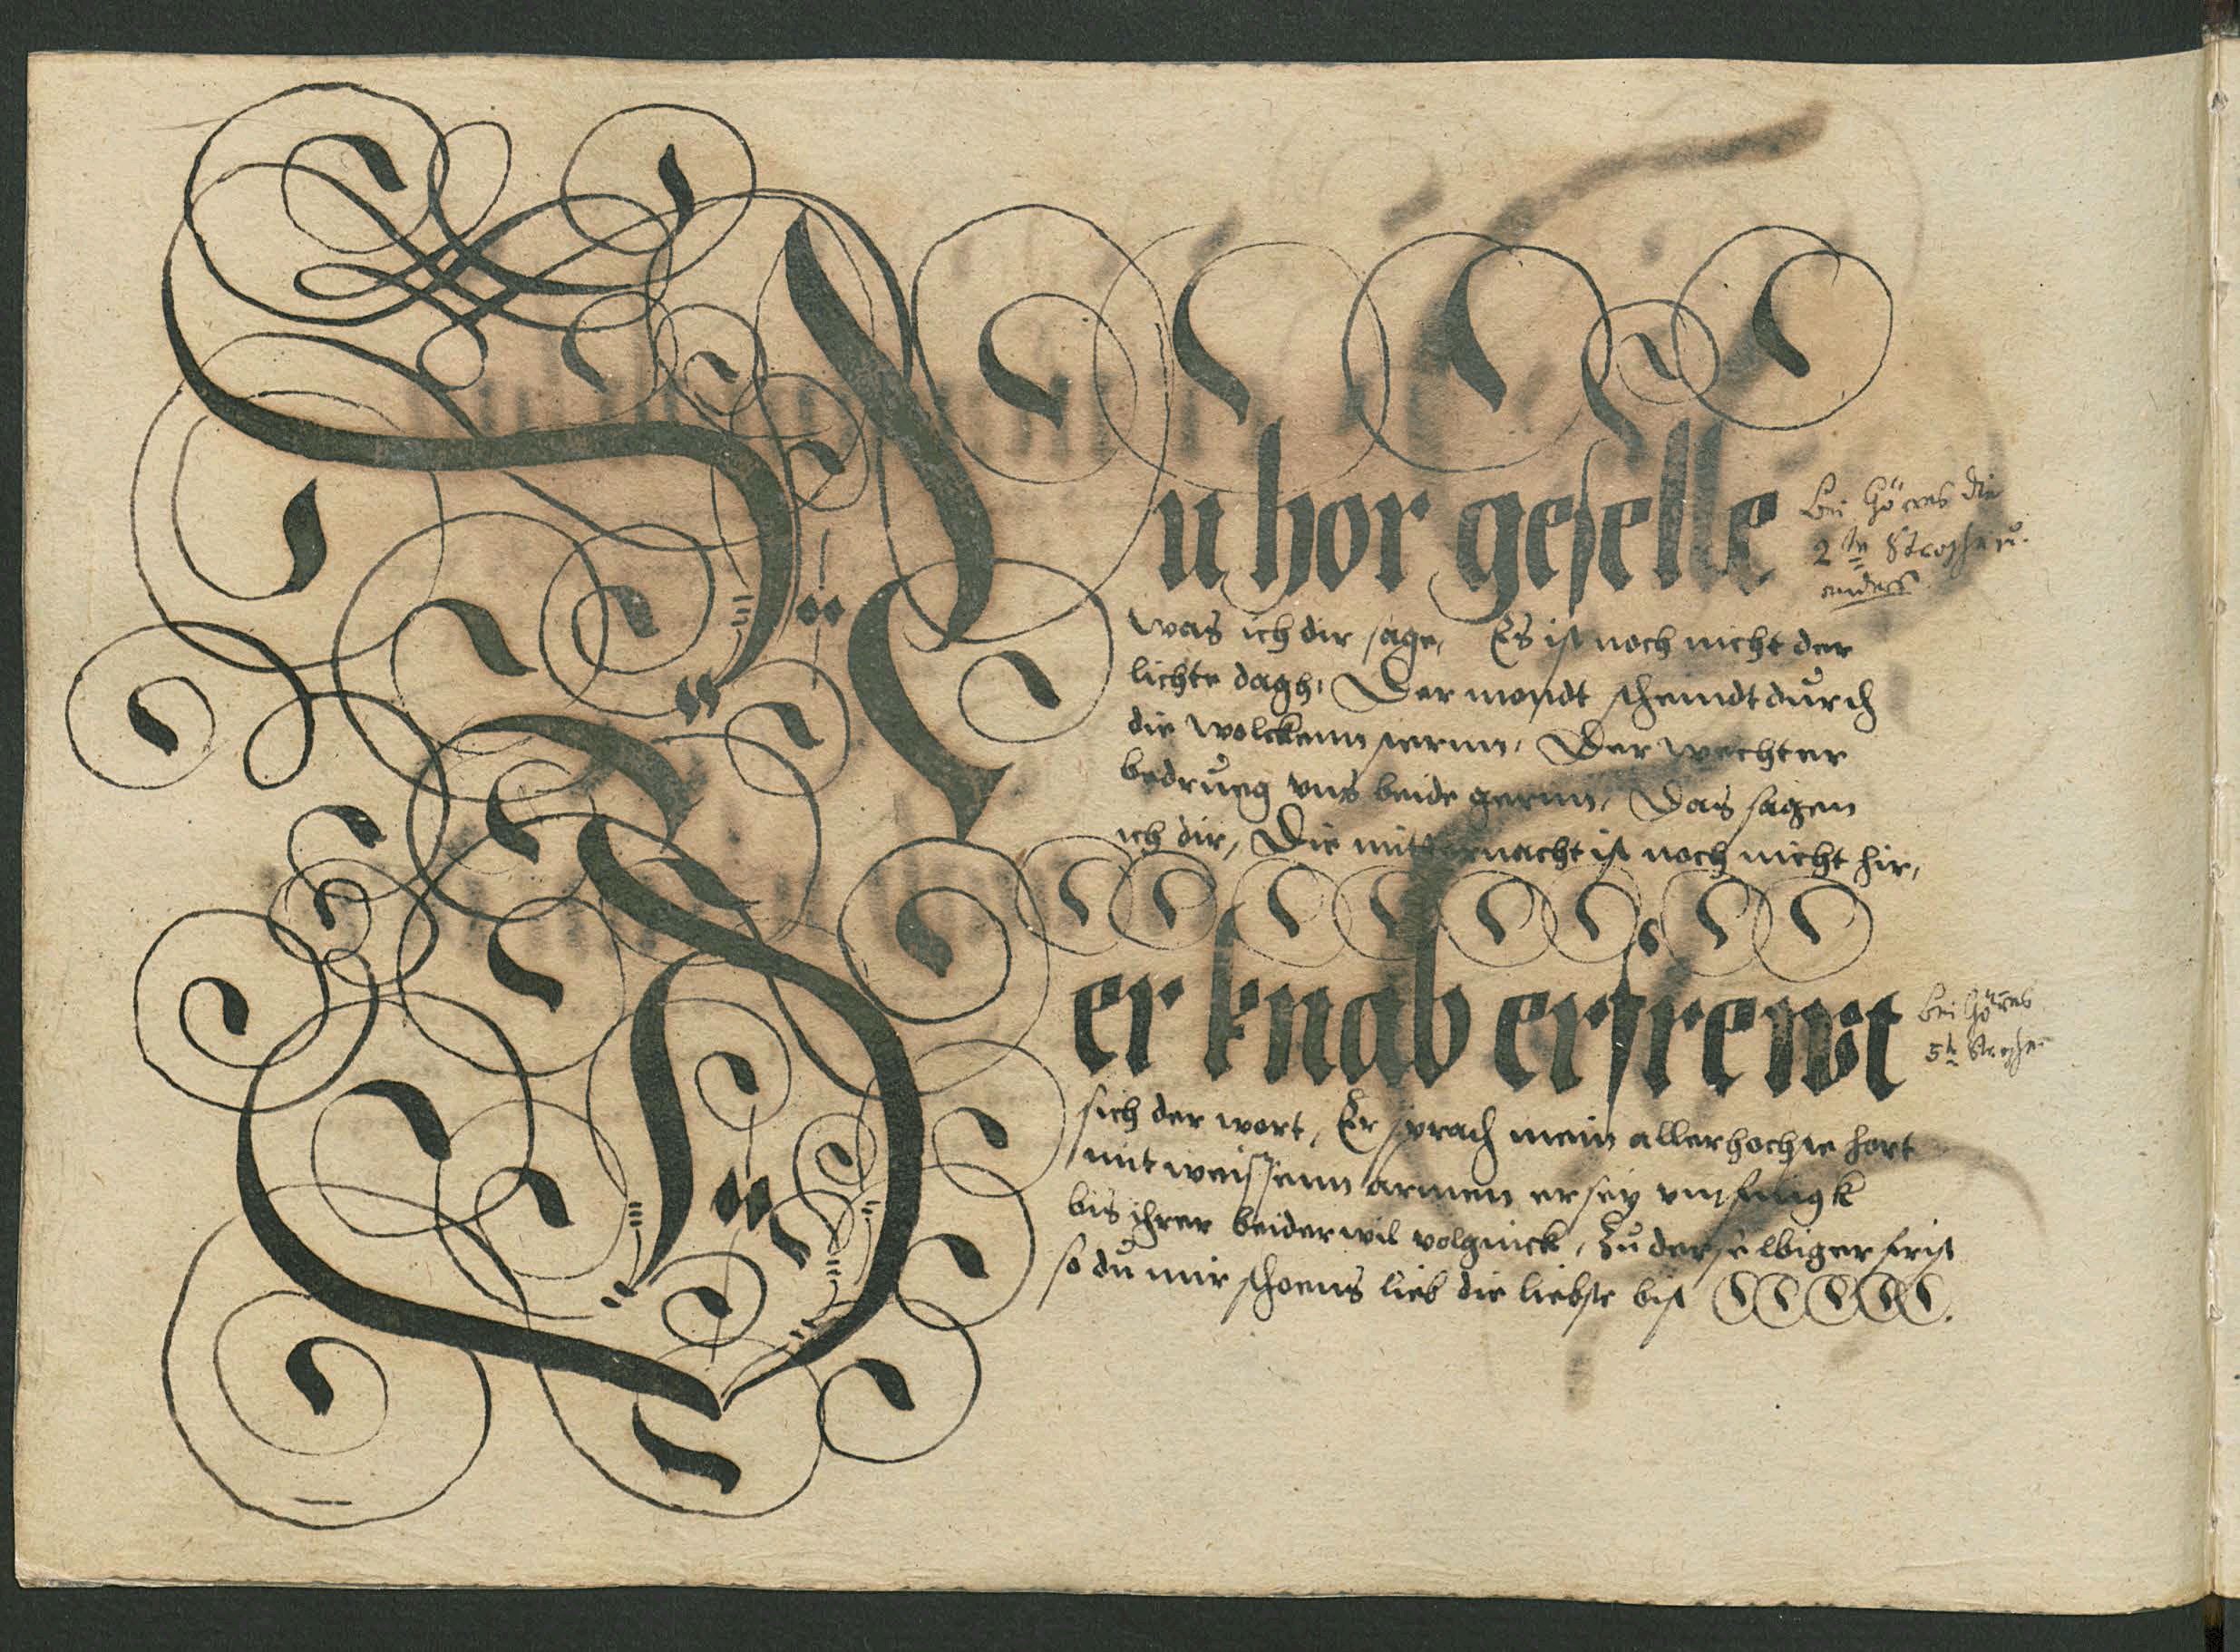 Nu hor geselle
was ich dir sage, Es ist noch nicht der
lichte dagh, Der mondt scheindt durch
die wolckenn sternn, Der wechter
bedrueg vns beide gernn, Das sagen
ich dir, Die mitternacht ist noch nicht hir,
Bei Görres die
2te Strophe u.
anders
Der knab erfrewt
sich der wort, Er sprach mein allerhochste hort
mit weissenn armen er sey vmfingk
bis ihrer beider wil volginck, Zu der selbiger frist
so du mir schoens lieb die liebste bist
bei Görres
5te Strophe